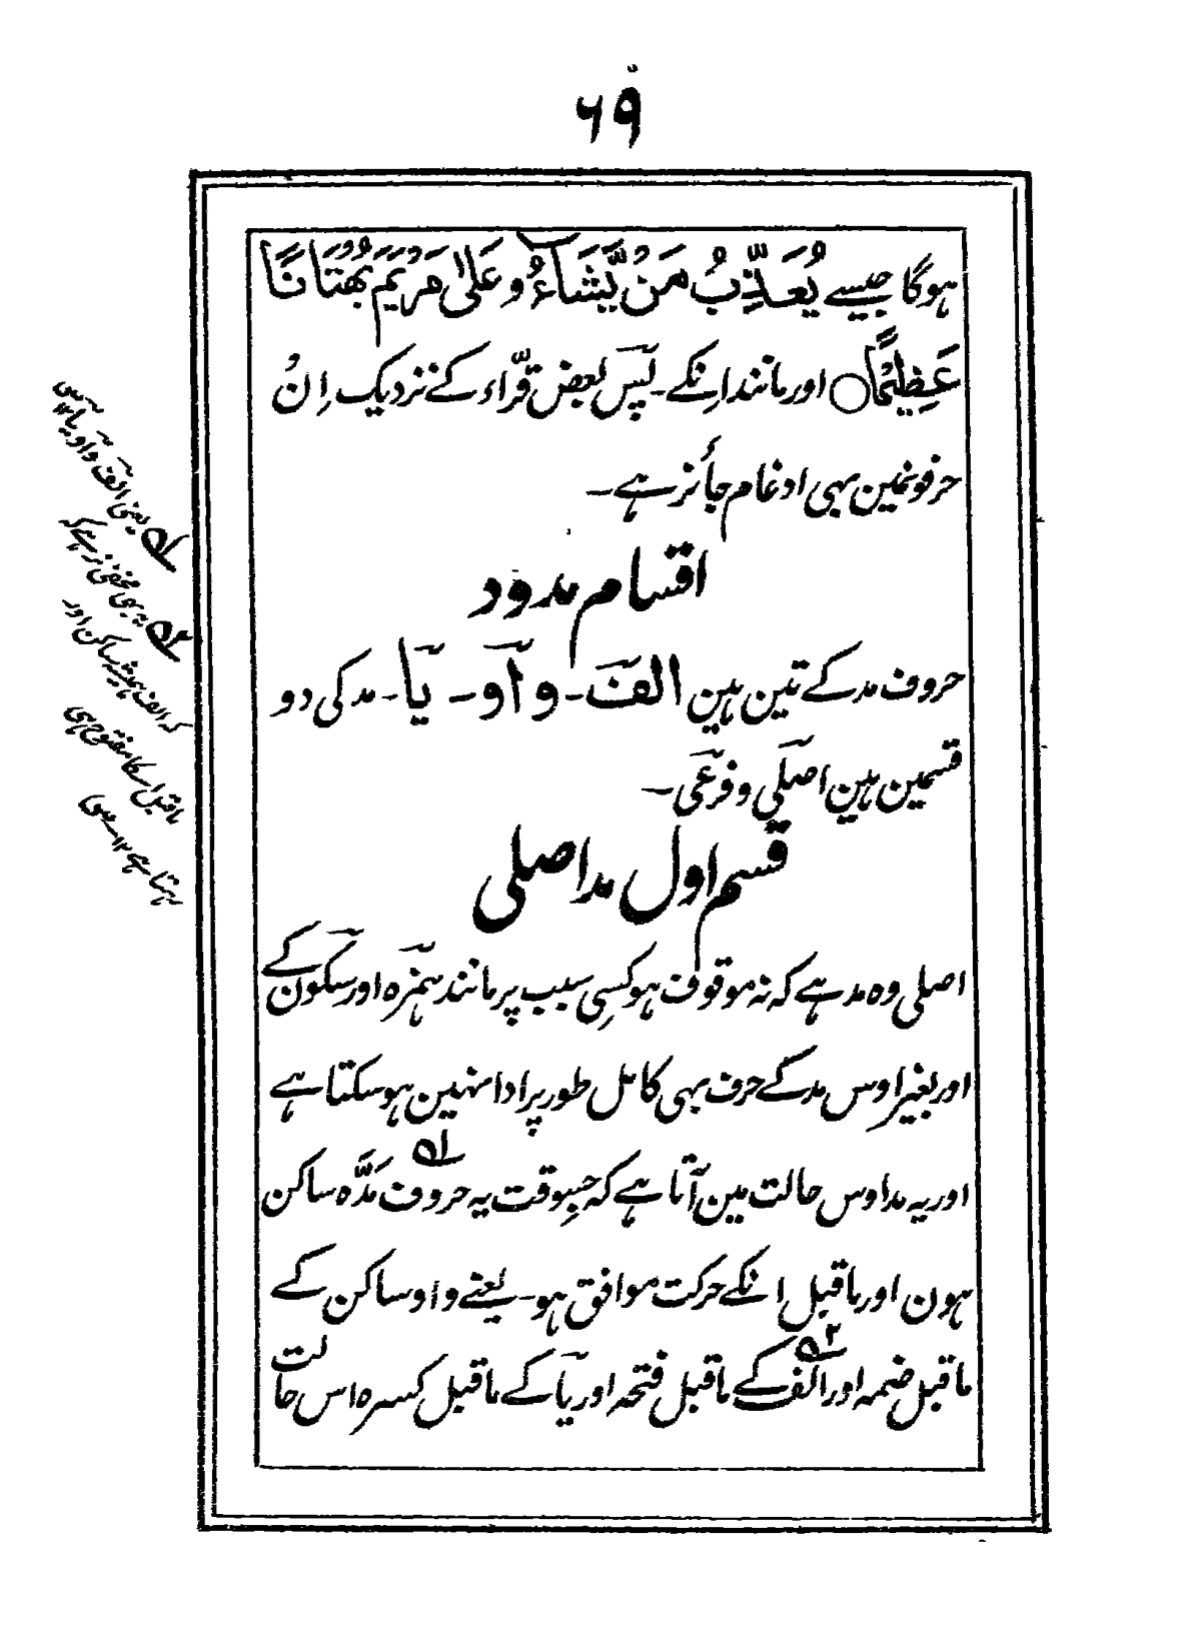 ۶۹
ہوگا جیسے یُعَذِّبُ مَنْ یَّشَآءُ و عَلٰی مَرْیَمَ بُهْتَانًا
عَظِیْمًا○ اور مانند انکے۔ پس بعض قرّاء کے نزدیک اِنْ
حرفونمین بہی ادغام جائز ہے۔
اقسام مدود
حروف مد کے تین ہین الف۔ واو۔ یا۔ مد کی دو
قسمین ہین اصلی و فرعی۔
قسم اول مد اصلی
اصلی وہ مد ہے کہ نہ موقوف ہو کسی سبب پر مانند ہمزہ اور سکون کے
اور بغیر اوس مد کے حرف بہی کامل طور پر ادا نہین ہو سکتا ہے
اور یہ مد اوس حالت مین آتا ہے کہ جسوقت یہ حروف مَدَّہ ساکن
ہون اور ماقبل انکے حرکت موافق ہو۔ یعنے واو ساکن کے
ماقبل ضمہ اور الف کے ماقبل فتحہ اور یا کے ماقبل کسرہ اس حالت
۱ یعنی الف و آو یا
۲ یہ بھی مخفی نرہے کہ
کہ الف ہمیشہ ساکن اور
ماقبل اسکا مفتوح ہی
رہتا ہے ۱۲